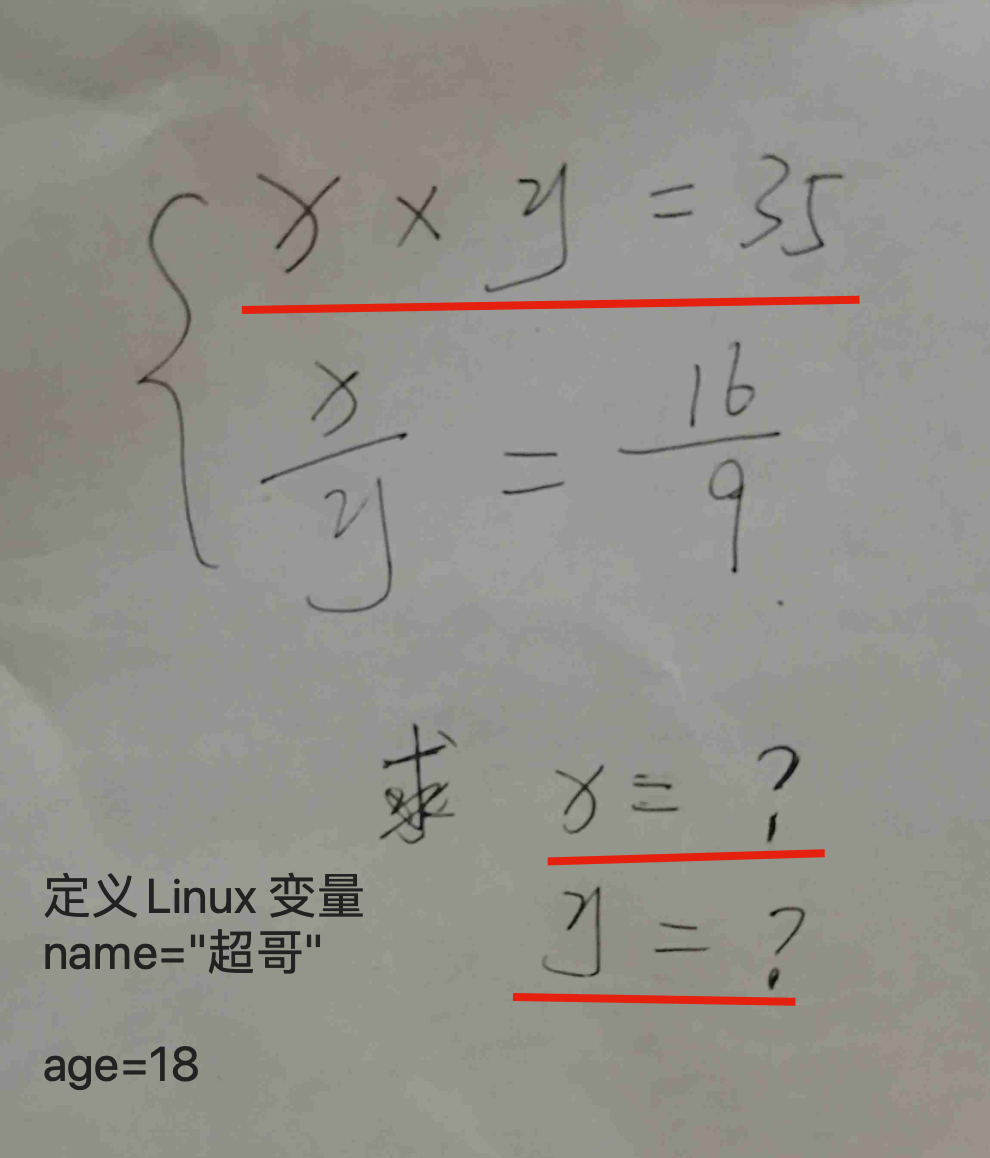 x × y = 35
x/y = 16/9
求 x = ?
y = ?
定义Linux 变量
name="超哥"
age=18